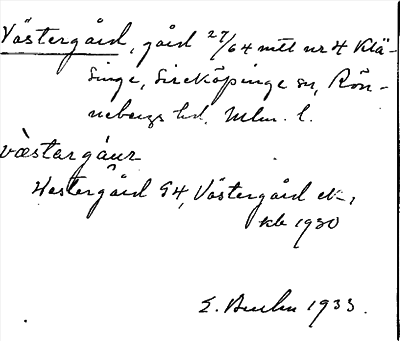 Västergård, gård 27/64 mtl nr 4 Klä-
singe, Sireköpinge sn, Rön-
nebergs hd, Mlm. l.
væstərgáur
Westergård GA, Västergård ek,
kb 1930
E. 1933.